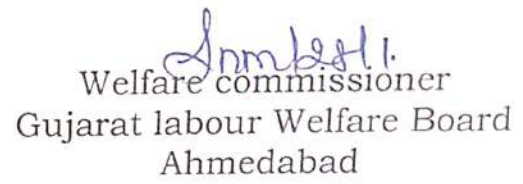 Welfare commissioner
Gujarat labour Welfare Board
Ahmedabad